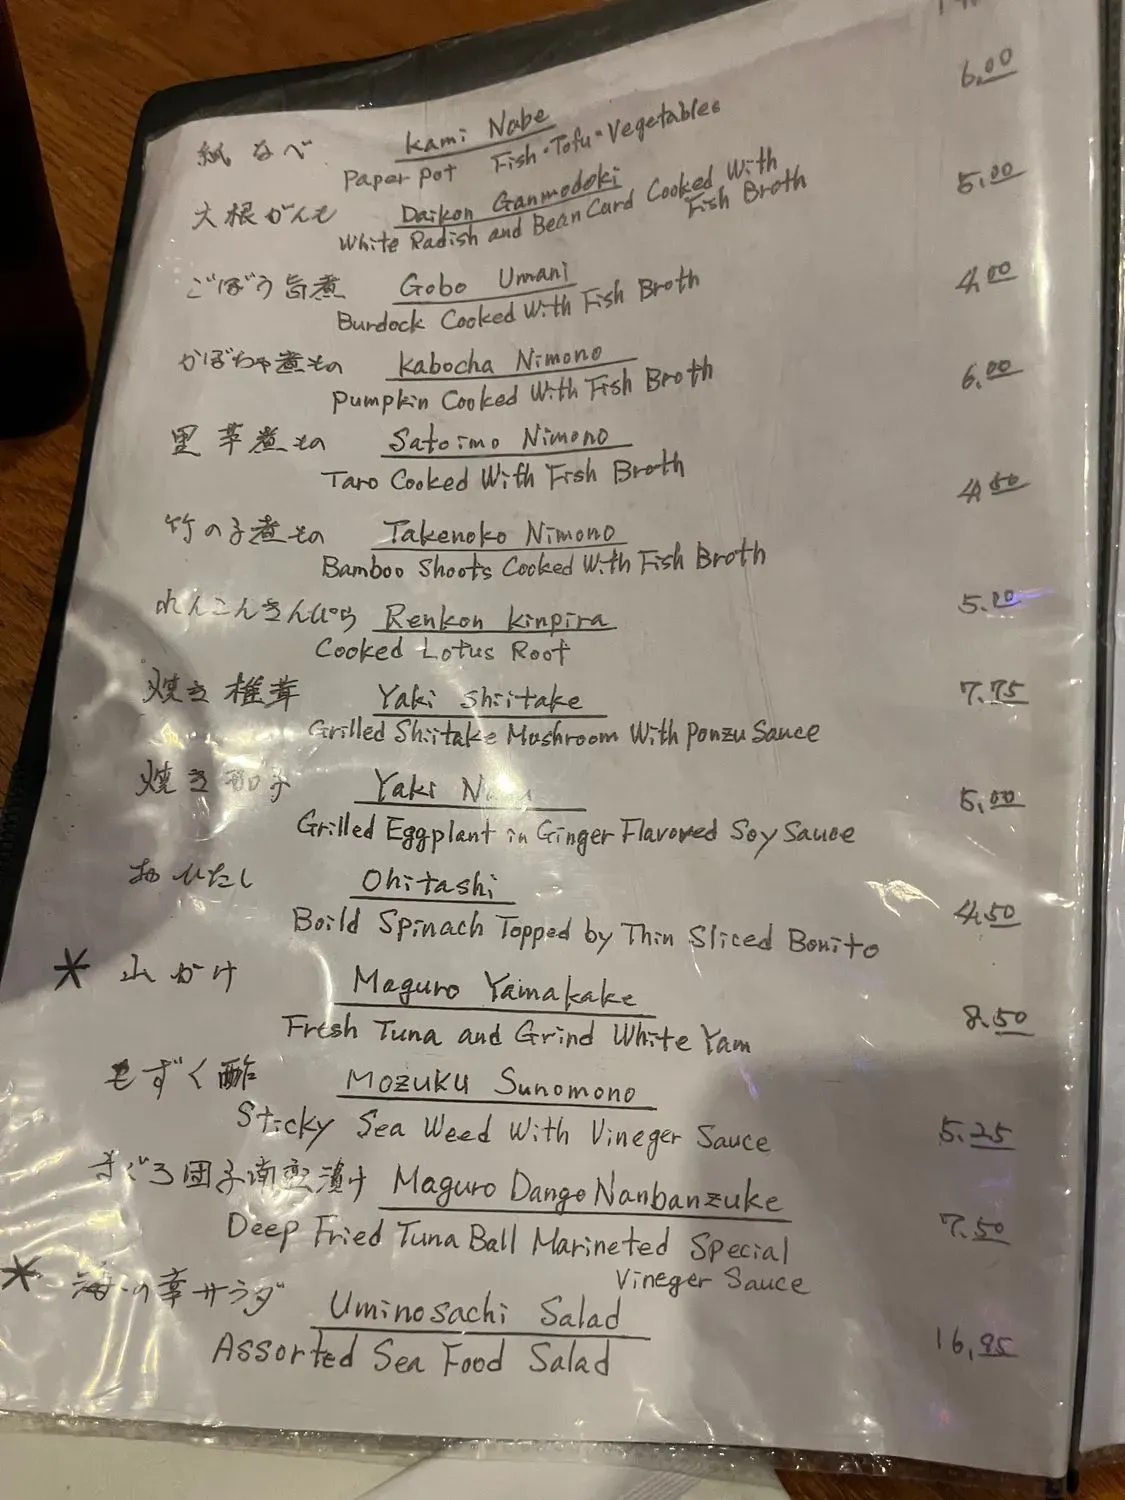 紙なべ Kami Nabe
Paper pot Fish・Tofu・Vegetables
大根がんも Daikon Ganmodoki 6.00
White Radish and Bean Card Cooked With
Fish Broth
ごぼう旨煮 Gobo Umani 5.00
Burdock Cooked With Fish Broth
かぼちゃ煮もの Kabocha Nimono 4.00
Pumpkin Cooked With Fish Broth
里芋煮もの Satoimo Nimono 6.00
Taro Cooked With Fish Broth
竹の子煮もの Takenoko Nimono 4.50
Bamboo Shoots Cooked With Fish Broth
れんこんきんぴら Renkon Kinpira 5.00
Cooked Lotus Root
焼き椎茸 Yaki Shiitake 7.75
Grilled Shiitake Mushroom With Ponzu Sauce
焼き茄子 Yaki 5.00
Grilled Eggplant in Ginger Flavored Soy Sauce
おひたし Ohitashi 4.50
Boild Spinach Topped by Thin Sliced Bonito
* 山かけ Maguro Yamakake 8.50
Fresh Tuna and Grind White Yam
もずく酢 Mozuku Sunomono 5.25
Sticky Sea Weed With Vineger Sauce
まぐろ団子南蛮漬け Maguro Dango Nanbanzuke 7.50
Deep Fried Tuna Ball Marineted Special
Vineger Sauce
* 海の幸サラダ Uminosachi Salad 16.95
Assorted Sea Food Salad